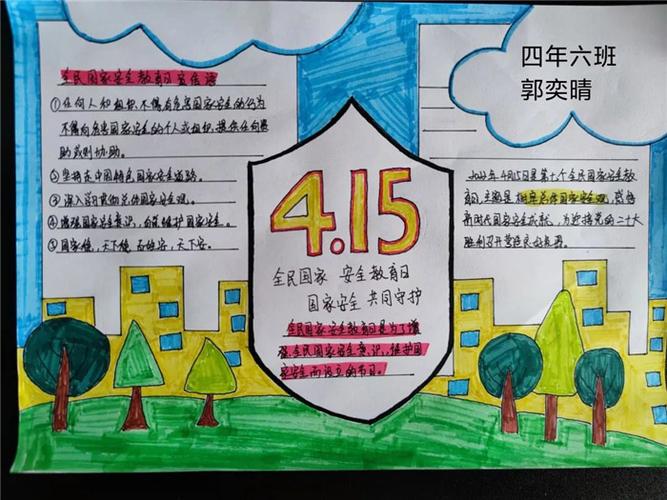 四年六班
郭奕晴
全民国家安全教育日宣传语
①任何人和组织,不得有危害国家安全的行为
不得向危害国家安全的个人或组织,提供任何资
助或则协助。
②坚持走中国特色国家安全道路。
③深入学习贯彻总体国家安全观。
④增强国家安全意识,自觉维护国家安全。
⑤国家健,天下健 百姓安,天下安。
4.15
全民国家 安全教育日
国家安全 共同守护
全民国家安全教育日是为了增
强全民国家安全意识,维护国
家安全而设立的节日。
2022年4月15日是第七个全民国家安全教
育日,主题是 树牢总体国家安全观,感悟
新时代国家安全成就,为迎接党的二十大
胜利召开营造良好氛围。